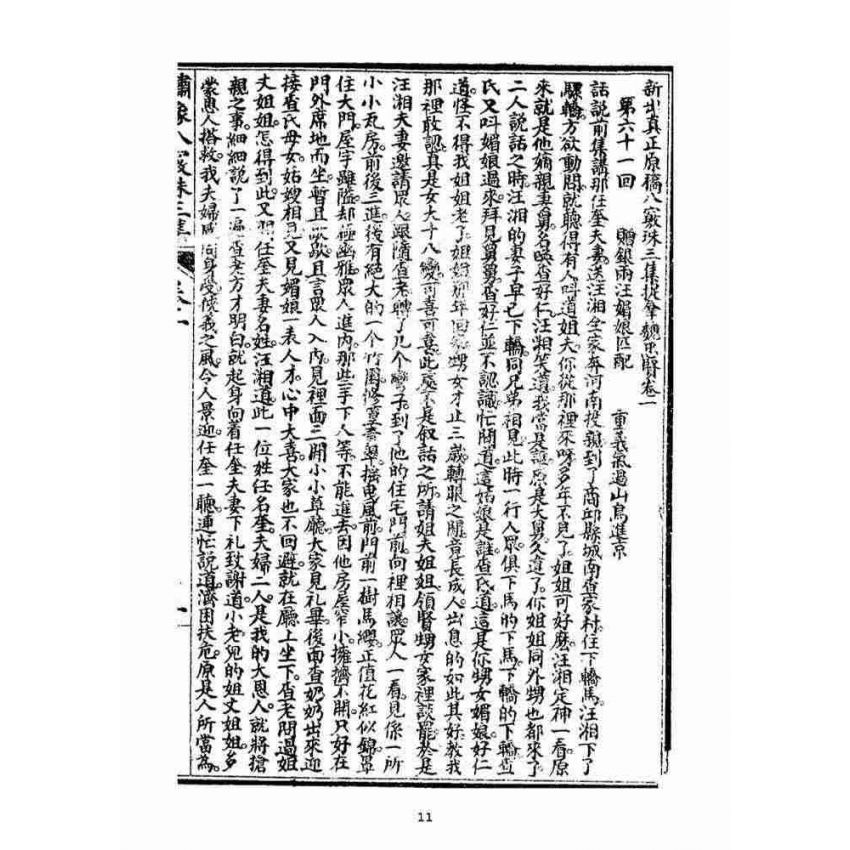 新出真正原稿八竅珠三集捉拿顏可賢卷一
第六十一回 贈銀兩汪媚娘匹配 重義氣過山鳥進京
話說前集講那任奎夫妻送汪湘全家奔河南投親到了商邱縣城南查家村住下轎馬汪湘下了
騾轎方欲動問就聽得有人叫道姐夫你從那裡來呀多年不見了姐姐可好麽汪湘定神一看原
來就是他嫡親妻舅名喚查好仁汪湘笑道我當是誰原是大舅久違了你姐姐同外甥也都來了
二人說話之時汪湘的妻子早已下轎同兄弟相見此時一行人眾俱下馬的下馬下轎的下轎查
氏又叫媚娘過來拜見舅舅查好仁並不認識忙問道這姑娘是誰查氏道這是你甥女媚娘好仁
道怪不得我姐姐老了姐姐那年回家甥女才止三歲轉眼之間言長成人出息的如此其好教我
那裡敢認真是女大十八變可喜可喜此處不是叙話之所請姐夫姐姐領賢甥女家裡談罷於是
汪湘夫妻邀請眾人跟隨查老轉了几个彎子到了他的住宅門前向裡相讓眾人一看見係一所
小小瓦房前後三進後有絕大的一个竹園修 搖曳風前門前一樹馬纓正值花紅似錦罩
住大門屋宇雖隘却極幽雅眾人進內那些手下人等不能進去因他房屋窄小擁擠不開只好在
門外席地而坐暫且歇歇且言眾人入內見裡面三開小小草廳大家見礼畢後面查奶奶出來迎
接查氏母女姑嫂相見又見媚娘一表人才心中大喜大家也不回避就在廳上坐下查老問過姐
丈姐姐怎得到此又 任奎夫妻名姓汪湘道此一位姓任名奎夫婦二人是我的大恩人就將搶
親之事細細說了一遍查老方才明白就起身向着任奎夫妻下礼致謝道小老兒的姐丈姐姐多
蒙恩人搭救我夫婦感同身受俠義之風令人景迎任奎一聽連忙說道濟困扶危原是人所當為
繡像八竅珠三集 卷一 一
11